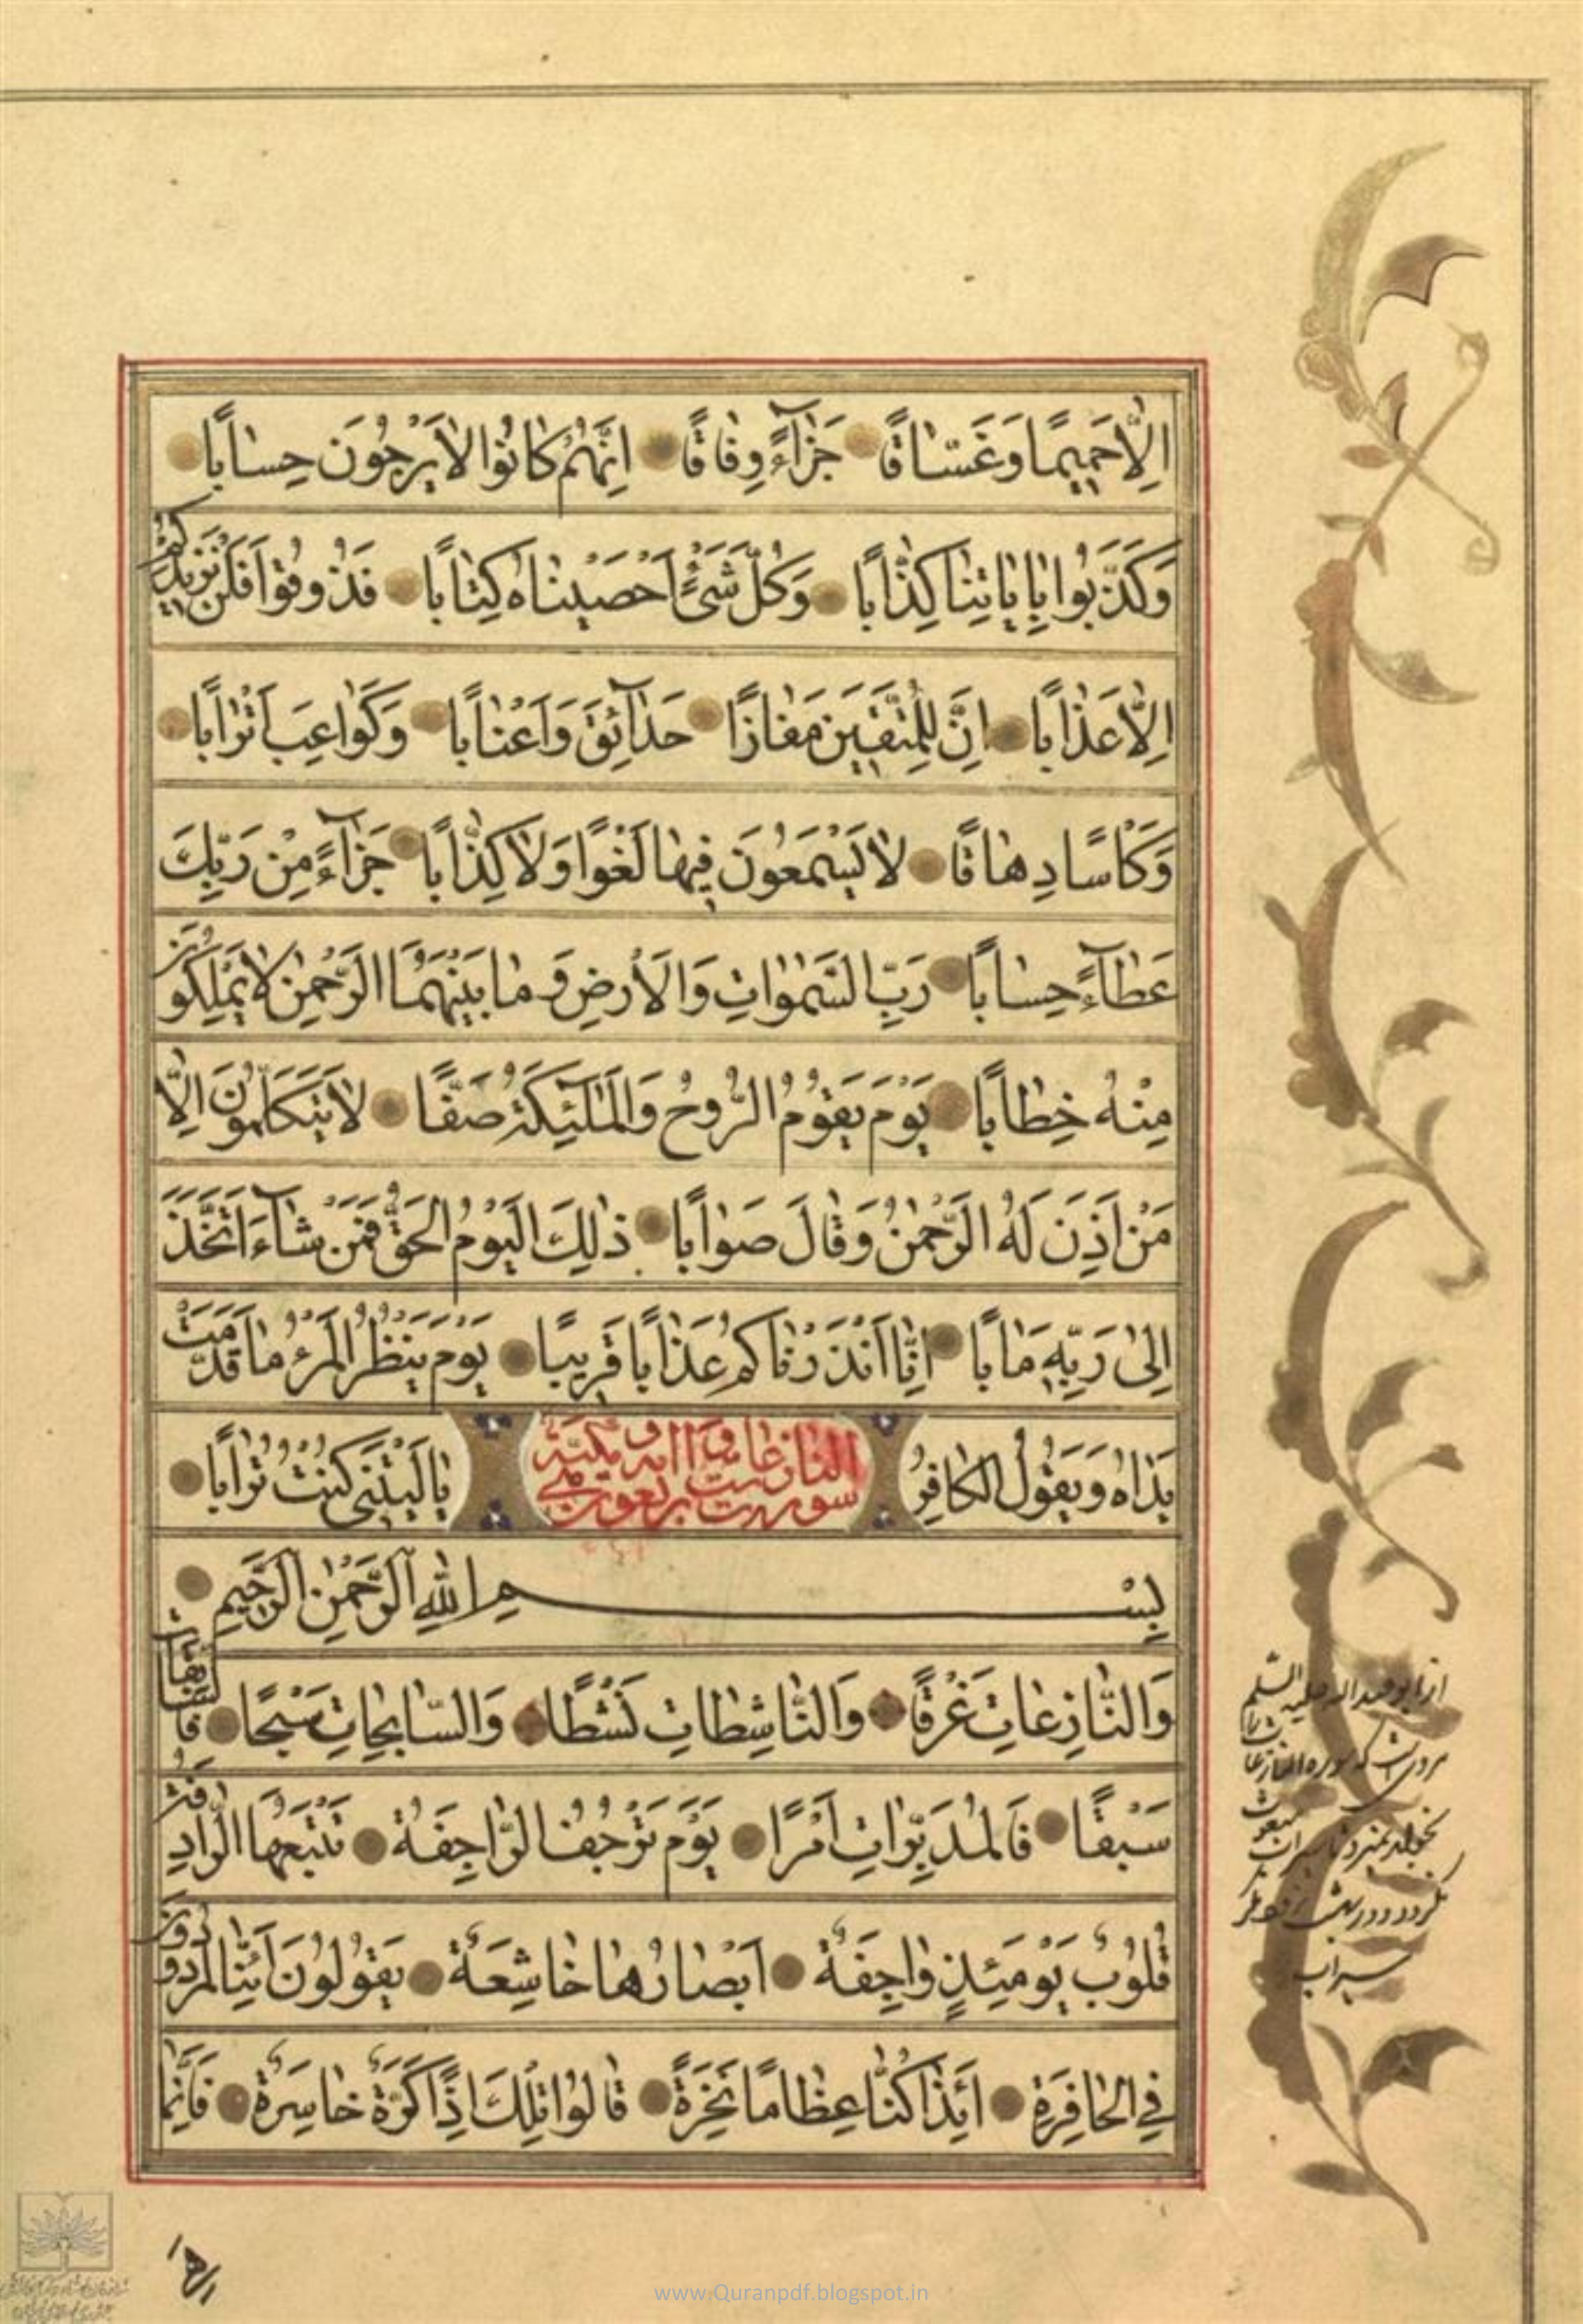 اِلّٰا حَمِيمًا وَغَسّٰاقًا جَزٰآءً وِفٰاقًا اِنَّهُمْ كٰانُوا لٰا يَرْجُونَ حِسٰابًا
وَكَذَّبُوا بِاٰيٰاتِنٰا كِذّٰابًا وَكُلَّ شَىْءٍ اَحْصَيْنٰاهُ كِتٰابًا فَذُوقُوا فَلَنْ نَزِيدَكُمْ
اِلّٰا عَذٰابًا اِنَّ لِلْمُتَّقِينَ مَفٰازًا حَدٰآئِقَ وَاَعْنٰابًا وَكَوٰاعِبَ اَتْرٰابًا
وَكَاْسًا دِهٰاقًا لٰا يَسْمَعُونَ فِيهٰا لَغْوًا وَلٰا كِذّٰابًا جَزٰآءً مِنْ رَبِّكَ
عَطٰآءً حِسٰابًا رَبِّ السَّمٰوٰاتِ وَالْاَرْضِ وَمٰا بَيْنَهُمَا الرَّحْمٰنِ لٰا يَمْلِكُونَ
مِنْهُ خِطٰابًا يَوْمَ يَقُومُ الرُّوحُ وَالْمَلٰٓئِكَةُ صَفًّا لٰا يَتَكَلَّمُونَ اِلّٰا
مَنْ اَذِنَ لَهُ الرَّحْمٰنُ وَقٰالَ صَوٰابًا ذٰلِكَ الْيَوْمُ الْحَقُّ فَمَنْ شٰآءَ اتَّخَذَ
اِلىٰ رَبِّهِ مَاٰبًا اِنّٰا اَنْذَرْنٰاكُمْ عَذٰابًا قَرِيبًا يَوْمَ يَنْظُرُ الْمَرْءُ مٰا قَدَّمَتْ
يَدٰاهُ وَيَقُولُ الْكٰافِرُ يٰا لَيْتَنِى كُنْتُ تُرٰابًا
سورة النازعات ست واربعون اية مكية
بِسْمِ اللّٰهِ الرَّحْمٰنِ الرَّحِيمِ
وَالنّٰازِعٰاتِ غَرْقًا وَالنّٰاشِطٰاتِ نَشْطًا وَالسّٰابِحٰاتِ سَبْحًا فَالسّٰابِقٰاتِ
سَبْقًا فَالْمُدَبِّرٰاتِ اَمْرًا يَوْمَ تَرْجُفُ الرّٰاجِفَةُ تَتْبَعُهَا الرّٰادِفَةُ
قُلُوبٌ يَوْمَئِذٍ وٰاجِفَةٌ اَبْصٰارُهٰا خٰاشِعَةٌ يَقُولُونَ اَئِنّٰا لَمَرْدُودُونَ
فِى الْحٰافِرَةِ اَئِذٰا كُنّٰا عِظٰامًا نَخِرَةً قٰالُوا تِلْكَ اِذًا كَرَّةٌ خٰاسِرَةٌ فَاِنَّمٰا
از ابو عبد الله عليه السلم
كه سوره النازعات
سيراب
www.Quranpdf.blogspot.in